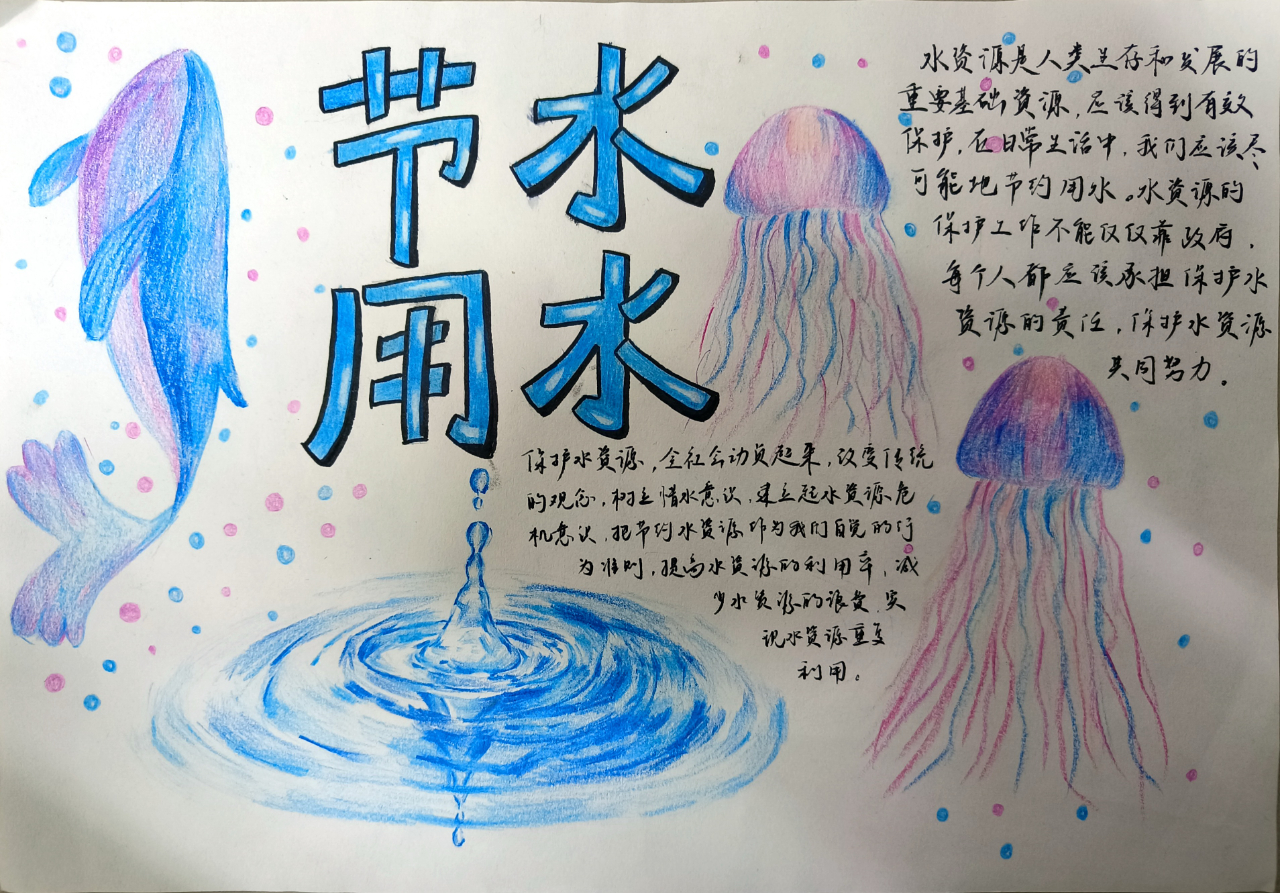 节水
用水
水资源是人类生存和发展的
重要基础资源，应该得到有效
保护，在日常生活中，我们应该尽
可能地节约用水。水资源的
保护工作不能仅仅靠政府，
每个人都应该承担保护水
资源的责任，保护水资源
共同努力。
保护水资源，全社会动员起来，改变传统
的观念，树立惜水意识，建立起水资源危
机意识，把节约水资源作为我们自觉的行
为准则，提高水资源的利用率，减
少水资源的浪费，实
现水资源重复
利用。